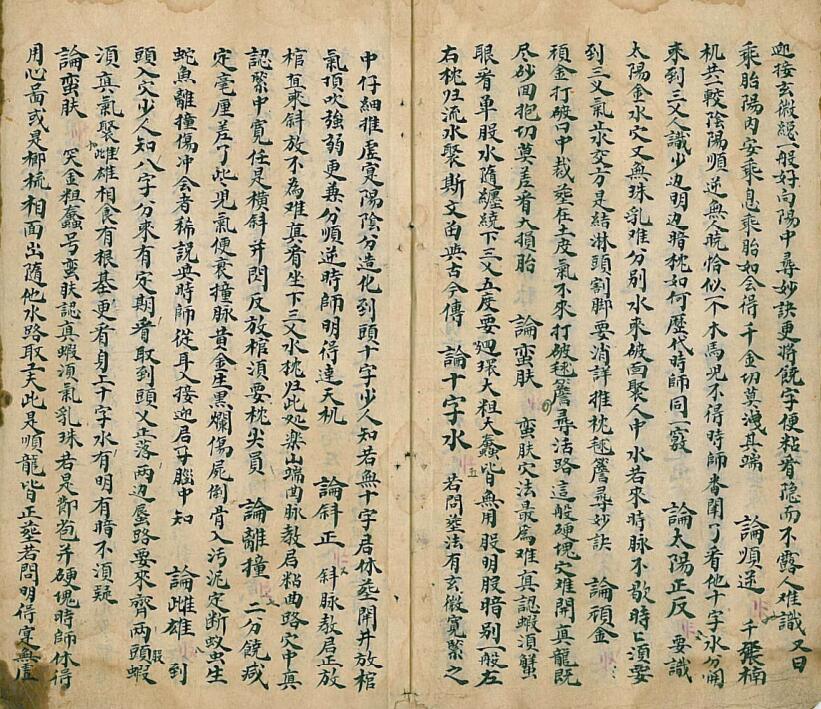 迎接玄微縂一般好向陽中尋妙訣更將饒字便粘脊隐而不露人难識 又曰
乘胎陽內安乘息乘胎如会得千金切莫洩其端 論順逆 千般楠
机共較陰陽順逆無人暁恰似一不木馬児不得時師眷閑了看他十字水分開
來到三义人識少边明边暗枕如何歴代時師同一竅 論太陽正反 要識
太陽金水穴又無珠乳难分別水來破面聚人中水若來時脉不歇時上須要
到三义氣止水交方是結淋頭割脚要消詳推枕毬簷尋妙訣 論頑金
頑金打破口中裁塟在土皮氣不來打破毬簷尋活路這般硬塊穴难開真龍既
尽砂回抱切莫差脊大損胎 論蛮肤 蛮肤穴法最爲难真認蝦湏蟹
眼看单股水隨纏繞下三义五度要廻環大粗大蠢皆無用股明股暗別一般左
右枕归流水聚斯文留與古今傳 論十字水 若問塟法有玄微寛緊之
中仔細推虛寔陽陰分造化到頭十字少人知若無十字君休塟開井放棺
氣頂吹強弱更兼分順逆時師明得達天机 論斜正 斜脉教君正放
棺直來斜放不為难真看坐下三义水枕归此处樂山端曲脉教君粘曲路穴中真
認緊中寛任是横斜并閃反放棺湏要枕尖員 論離撞 二分饒减
定毫厘差了些児氣便衰撞脉貴金生黒爛傷屍倒骨入污泥定断蚁虫生
蛇魚離撞傷冲会者稀説與時師從耳入接迎居守腦中知 論雌雄 到
頭入穴少人知八字分來有定期看取到頭义正落两边蜃路要來齊两頭蝦
湏真氣聚雌雄相食有根基更看身上十字水有明有暗不湏疑
論蛮肤 突金粗蠢号蛮肤認真蝦湏气乳珠若是鄣苞并硬塊時師休得
用心啚或是梛梳相面出隨他水路取工夫此是順龍皆正塟若問明得寔無虛